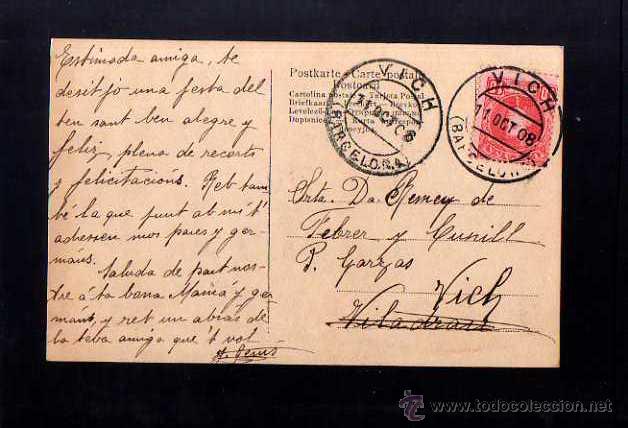 Estimada amiga, te
desitjo una festa del
ben sant ben alegre y
feliz, plena de recorts
y felicitacions. Reb tam
bé la que junt ab mi t'
adressen mos pares y ger
mans.
Saluda de part nos-
tre á ta bona Mamá y ger
mans, y ret un abrás de
la teba amiga que 't vol
Postkarte - Carte postale
Cartolina postale Tarjeta Postal
VICH
(BARCELONA)
VICH
11 OCT 08
(BARCELONA)
Srta. Da. Remey de
Febrer y Cunill
P. Garzas
Vich
Viladrau
todocoleccion.net
www.todocoleccion.net